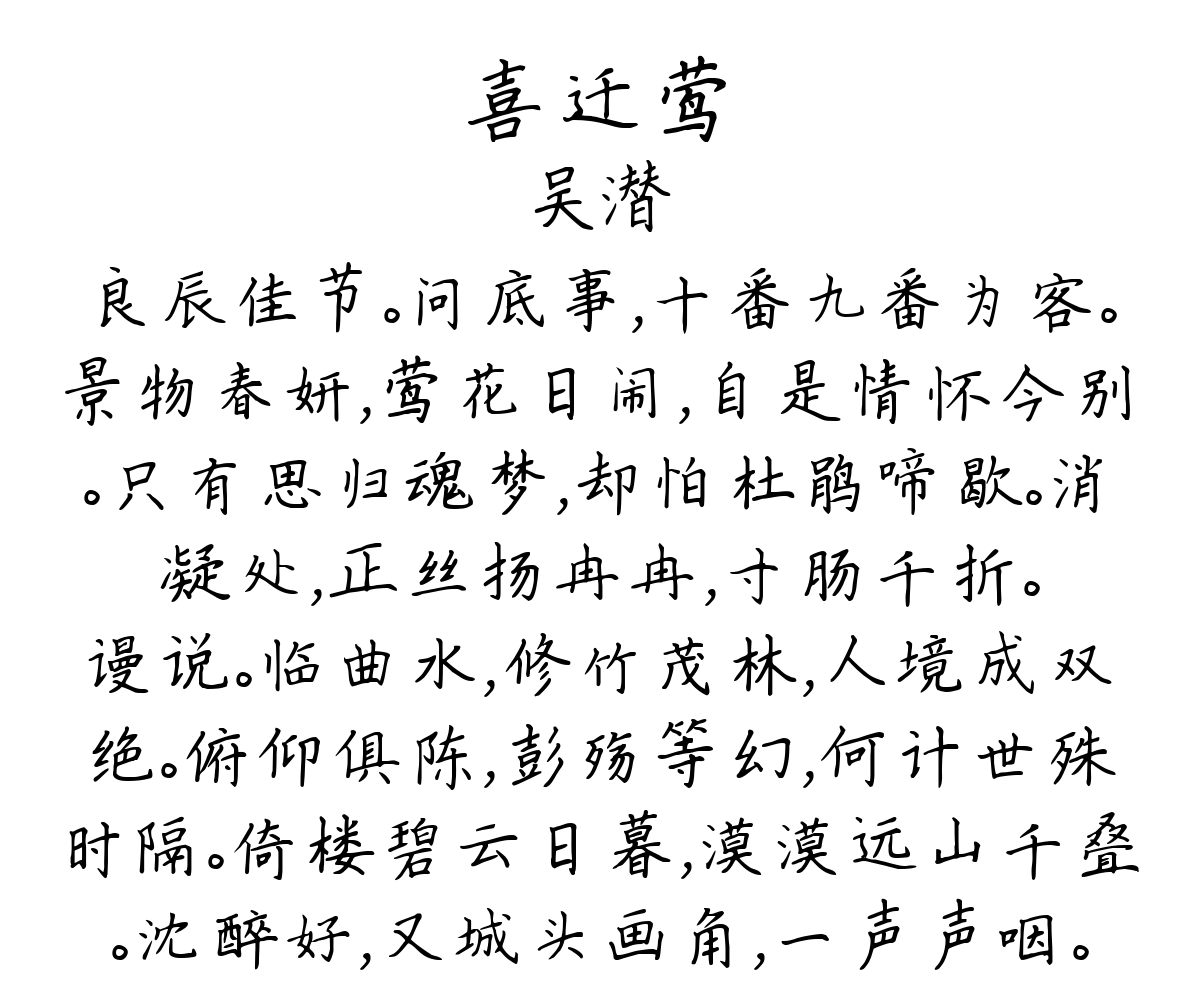 喜迁莺
吴潜
良辰佳节。问底事,十番九番为客。
景物春妍,莺花日闹,自是情怀今别
。只有思归魂梦,却怕杜鹃啼歇。消
凝处,正丝扬冉冉,寸肠千折。
谩说。临曲水,修竹茂林,人境成双
绝。俯仰俱陈,彭殇等幻,何计世殊
时隔。倚楼碧云日暮,漠漠远山千叠
。沈醉好,又城头画角,一声声咽。